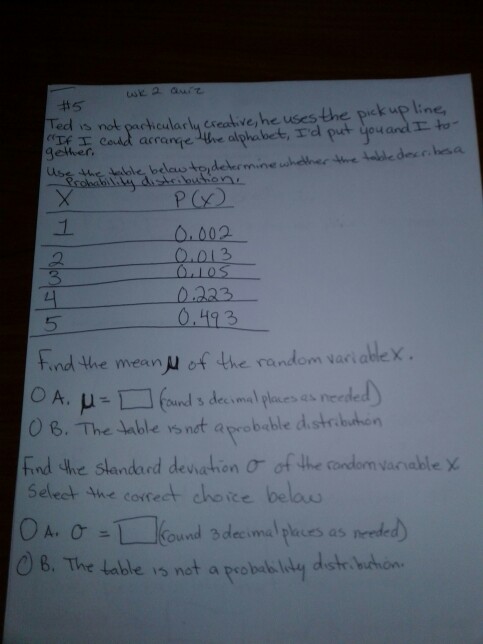 wk 2 quiz
#5
Ted is not particularly creative, he uses the pickup line,
"If I could arrange the alphabet, I'd put you and I to-
gether.
Use the table below to, determine whether the table describes a
Probability distribution.
X P(x)
1 0.002
2 0.013
3 0.105
4 0.223
5 0.493
Find the mean μ of the random variable X.
O A. μ = (round 3 decimal places as needed)
O B. The table is not a probable distribution
Find the standard deviation σ of the random variable X.
Select the correct choice below
O A. σ = (round 3 decimal places as needed)
O B. The table is not a probability distribution.